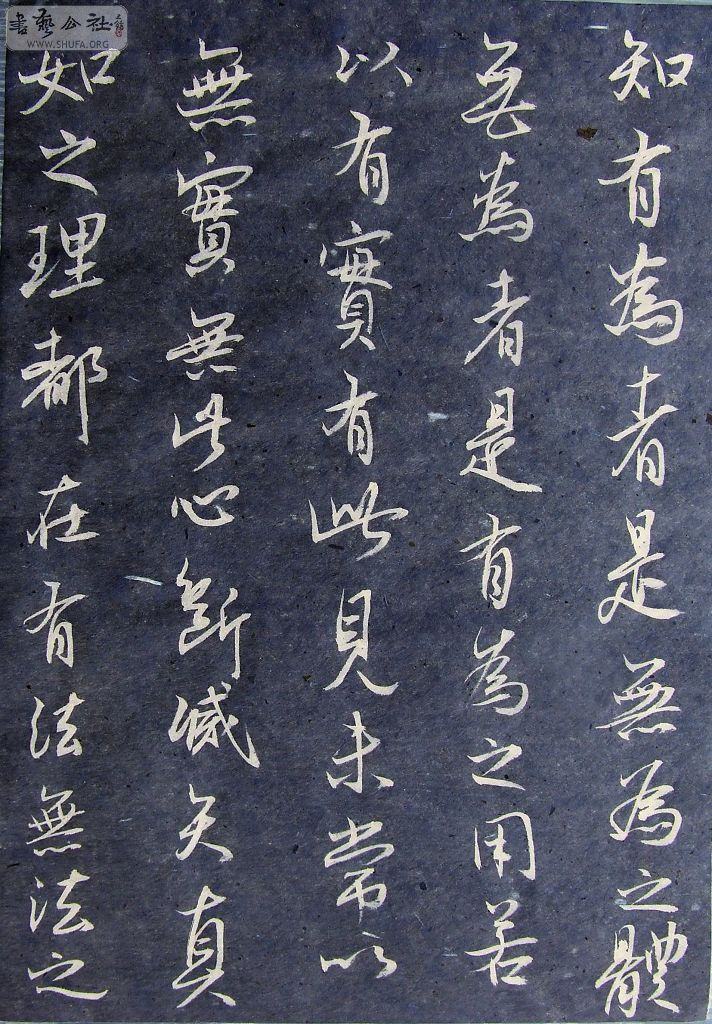 書藝公社
WWW.SHUFA.ORG
知有為者是無為之體
無為者是有為之用若
以有實有此見未常以
無實無此心斷滅失真
如之理都在有法無法之